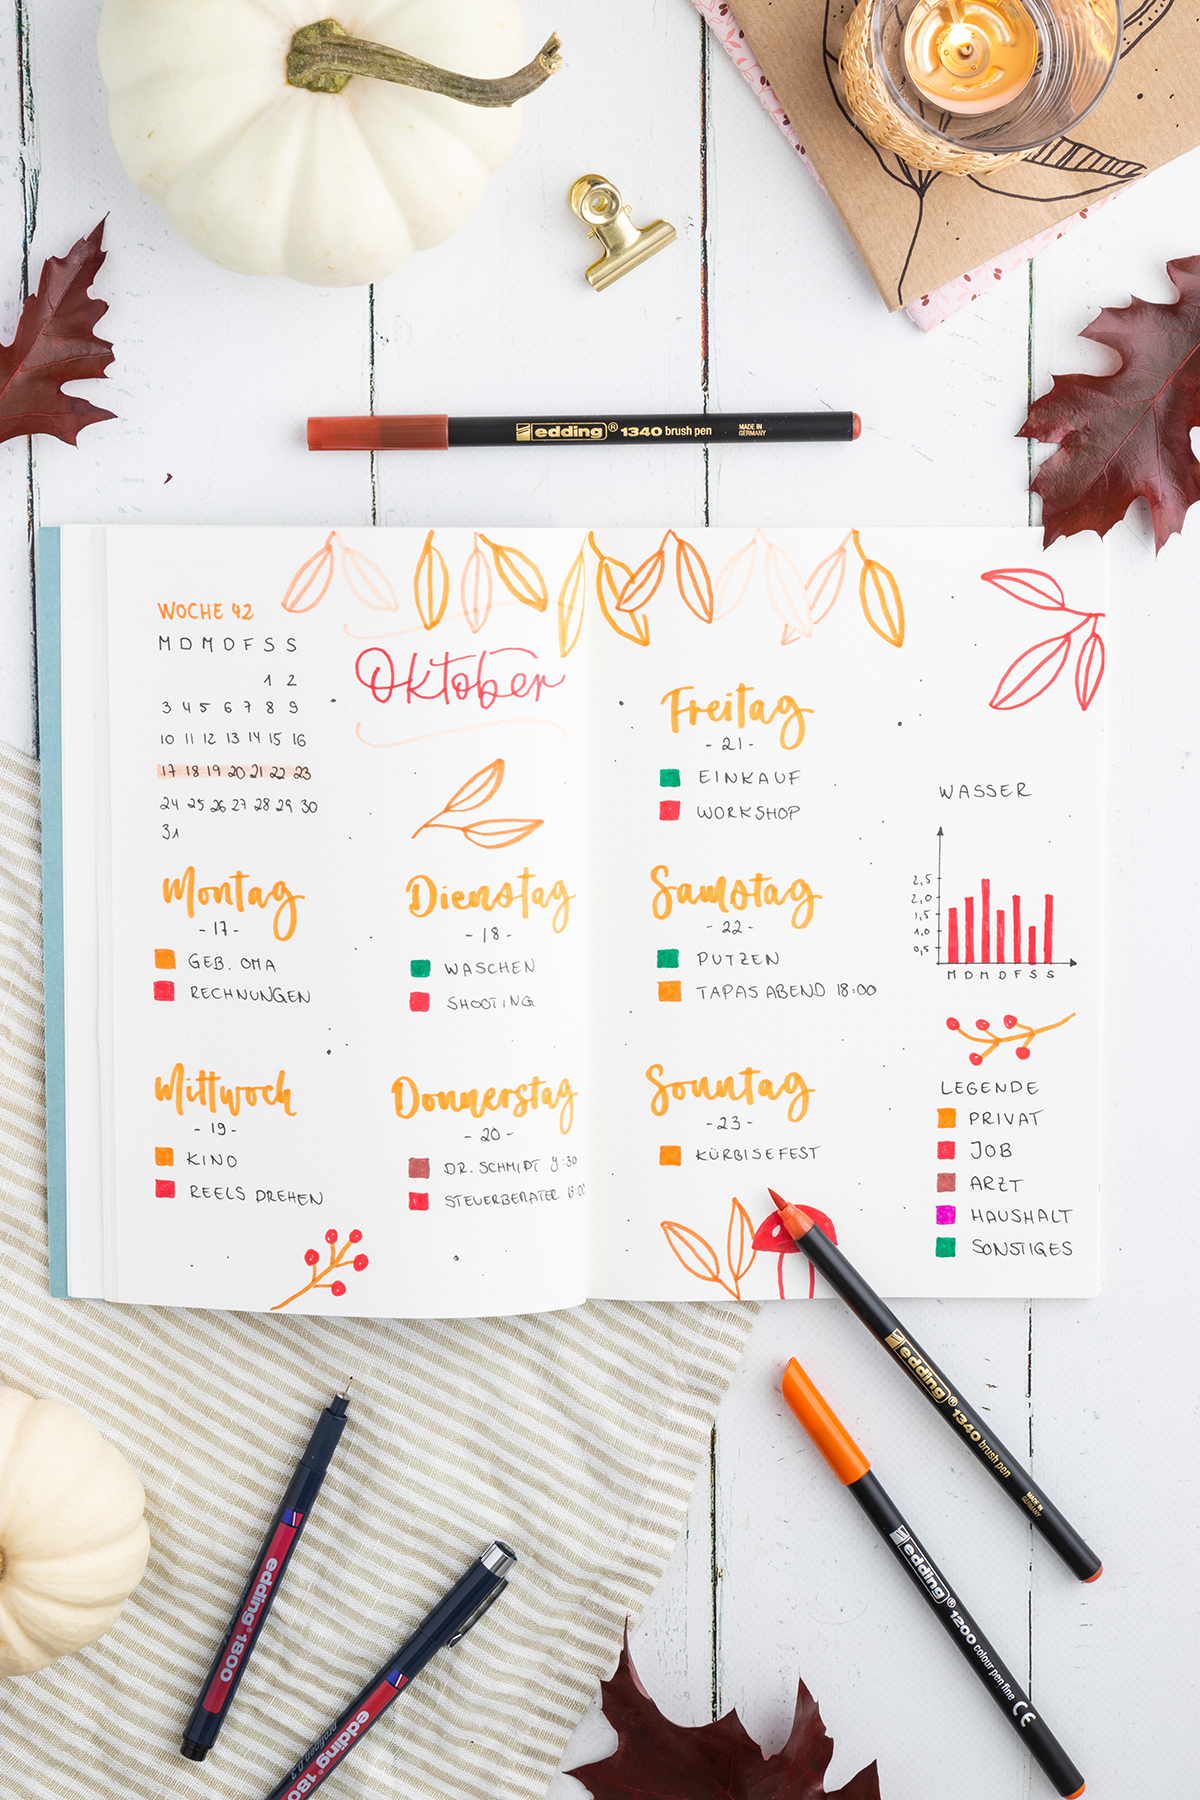 edding® 1340 brush pen MADE IN GERMANY
WOCHE 42
M D M D F S S
1 2
3 4 5 6 7 8 9
10 11 12 13 14 15 16
17 18 19 20 21 22 23
24 25 26 27 28 29 30
31
Oktober
Montag
- 17 -
GEB. OMA
RECHNUNGEN
Dienstag
- 18 -
WASCHEN
SHOOTING
Mittwoch
- 19 -
KINO
REELS DREHEN
Donnerstag
- 20 -
DR. SCHMIDT 9:30
STEUERBERATER 13:00
Freitag
- 21 -
EINKAUF
WORKSHOP
Samstag
- 22 -
PUTZEN
TAPAS ABEND 18:00
Sonntag
- 23 -
KÜRBISEFEST
WASSER
2,5
2,0
1,5
1,0
0,5
M D M D F S S
LEGENDE
PRIVAT
JOB
ARZT
HAUSHALT
SONSTIGES
edding® 1340 brush pen MADE IN GERMANY
edding® 1200 colour pen fine CE
edding® 1800
edding® 180
profipen 0.3